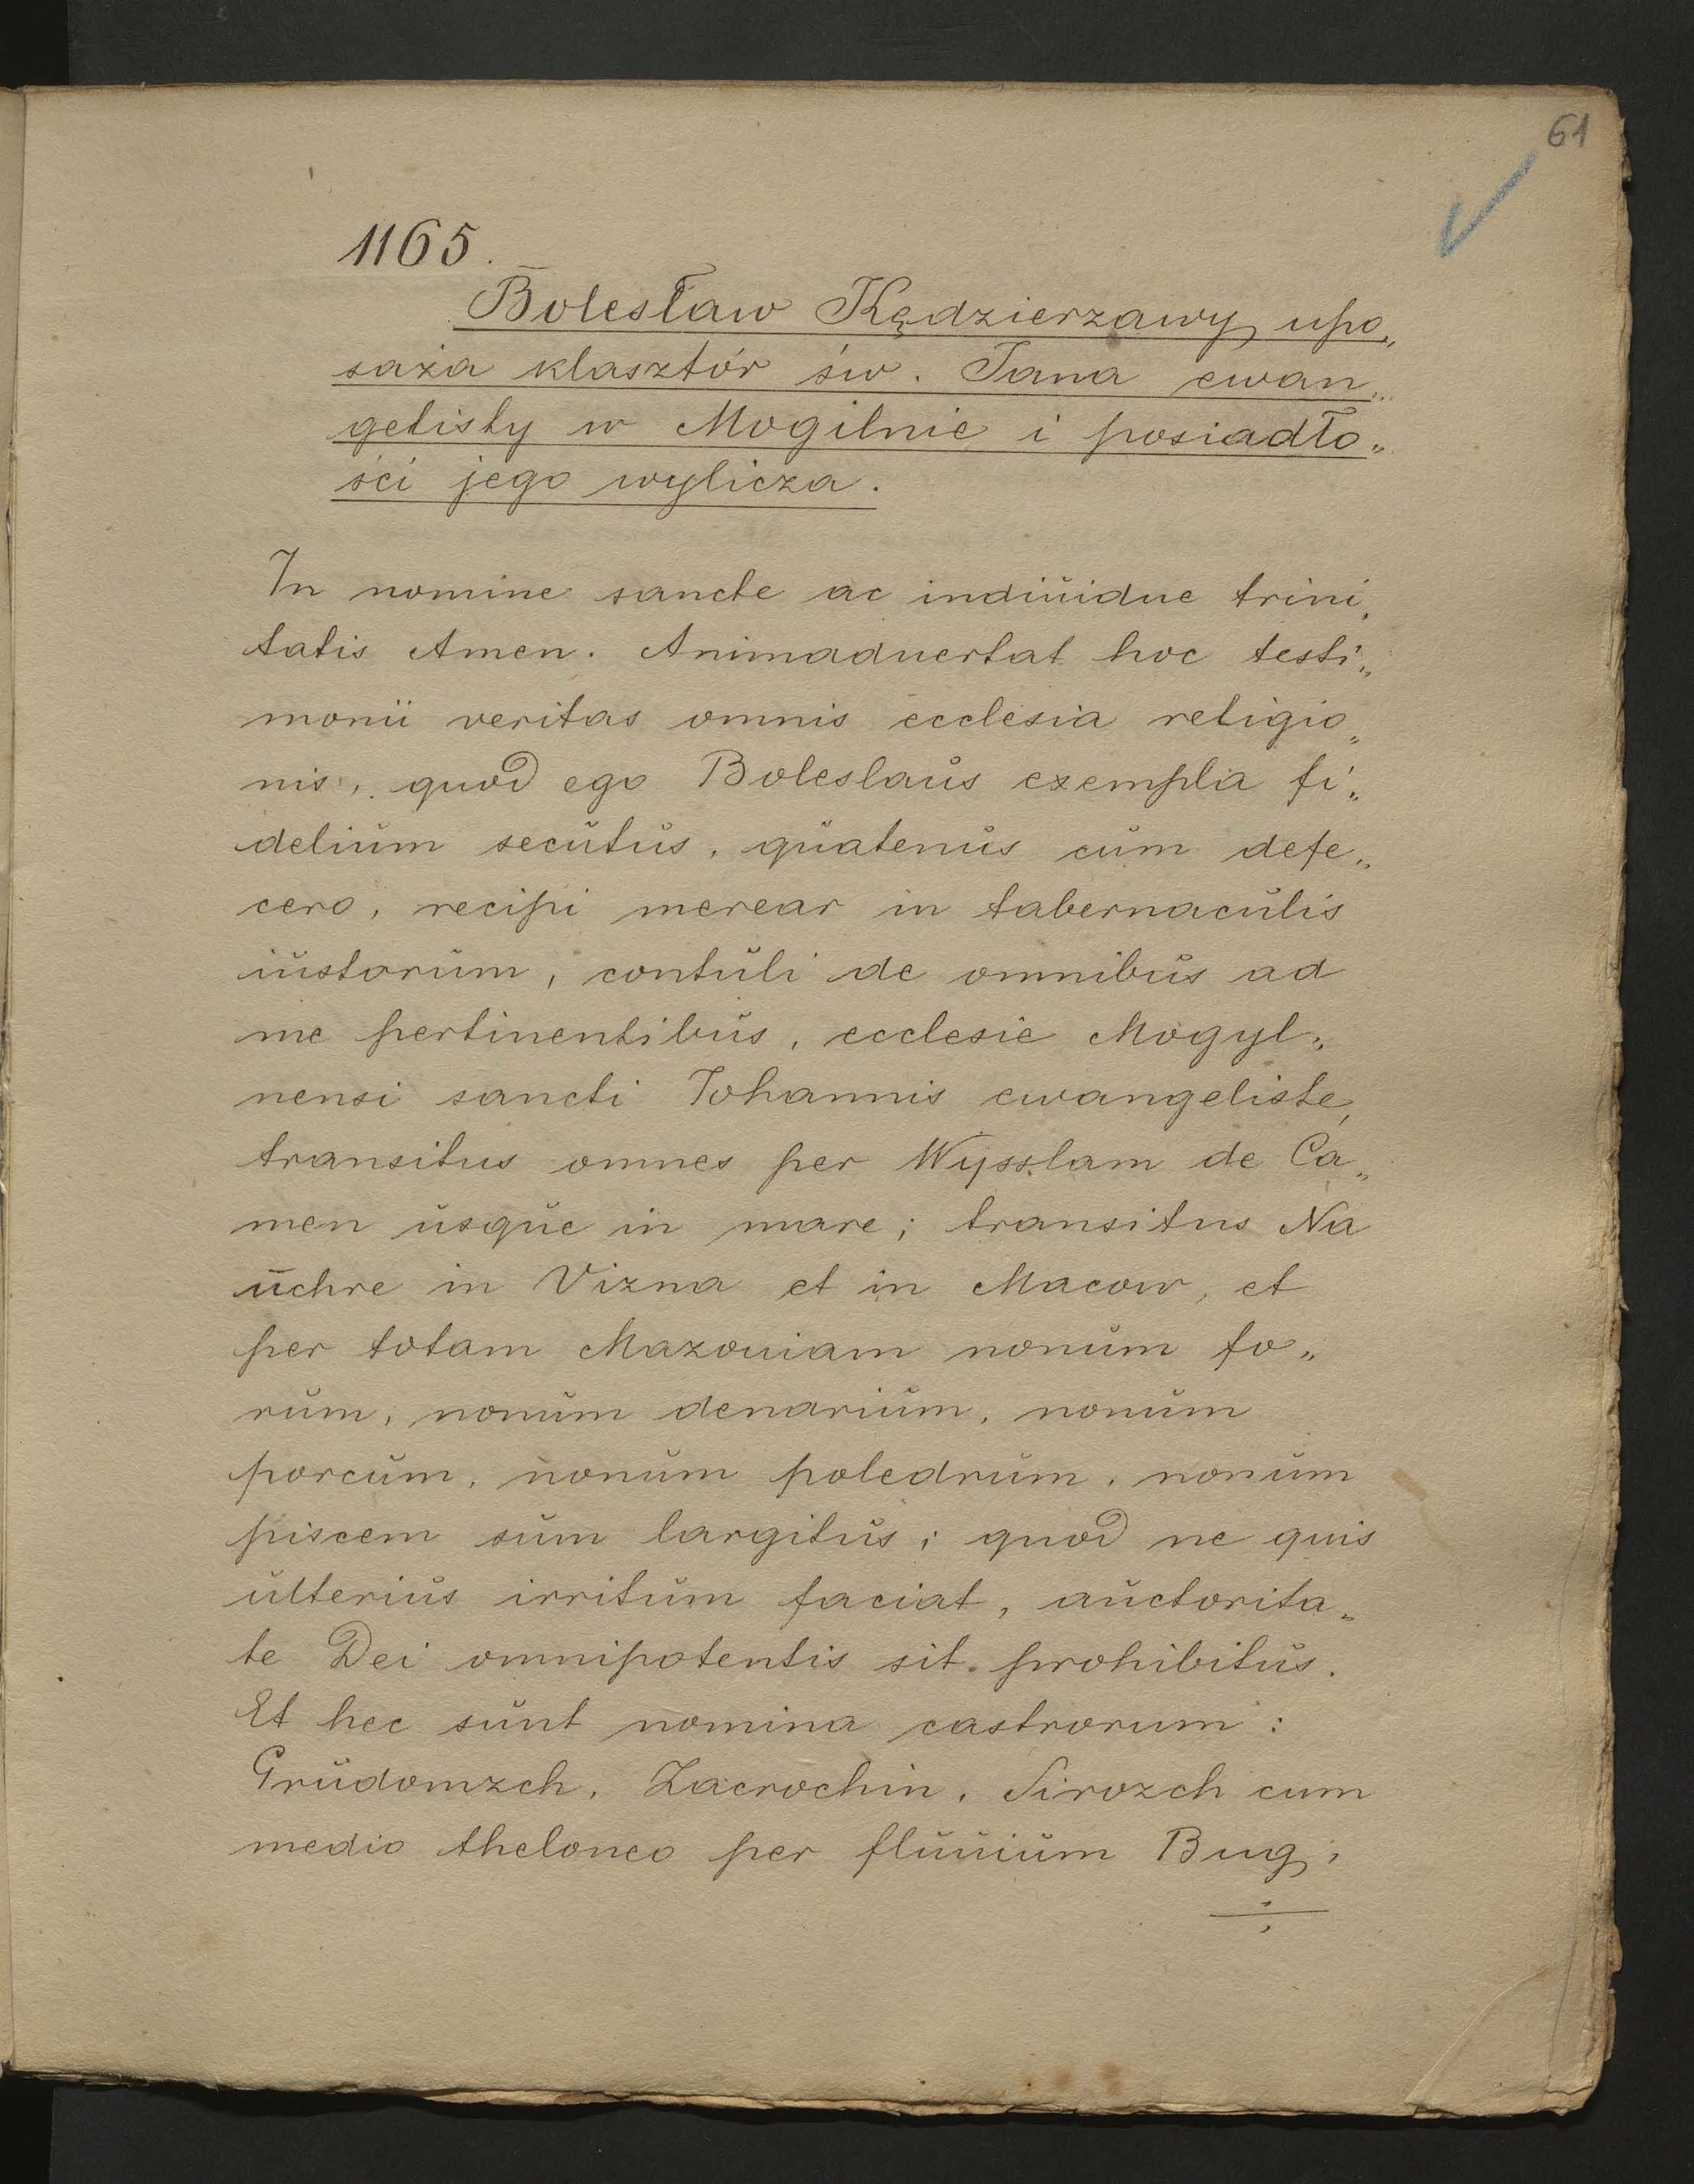 61
1165.
Bolesław Kędzierzawy upo„
saża klasztór św. Jana ewan„
gelisty w Mogilnie i posiadło„
ści jego wylicza.
In nomine sancte ac indiuidue trini„
tatis Amen. Animaduertat hoc testi„
monii veritas omnis ecclesia religio„
nis, quod ego Boleslaus exempla fi„
delium secutus, quatenus cum defe„
cero, recipi merear in tabernaculis
iustorum, contuli de omnibus ad
me pertinentibus, ecclesie Mogyl„
nensi sancti Johannis ewangeliste,
transitus omnes per Wysslam de Ca„
men usque in mare; transitus Na
uchre in Vizna et in Macow, et
per totam Mazouiam nonum fo„
rum, nonum denarium, nonum
porcum, nonum poledrum, nonum
piscem sum largitus; quod ne quis
ulterius irritum faciat, auctorita„
te Dei omnipotentis sit prohibitus.
Et hec sunt nomina castrorum:
Grudomzch, Zacrochin, Sirozch cum
medio theloneo per fluuium Bug,